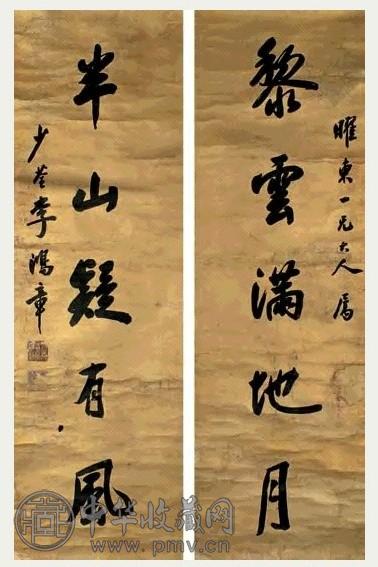 曜東一兄大人屬
黎雲滿地月
半山疑有風
少荃李鴻章
中华收藏网
www.pmv.cn